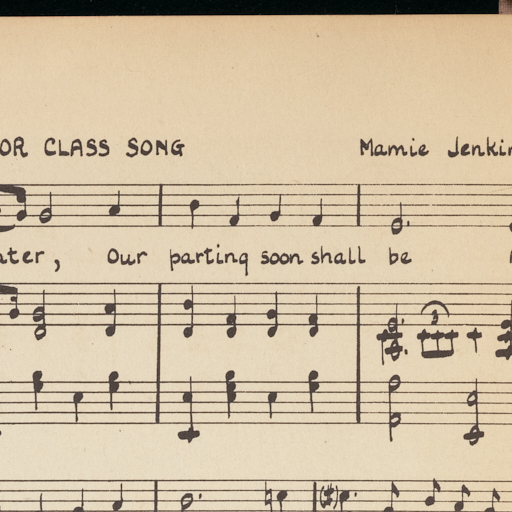 OR CLASS SONG Mamie Jenkin
ater, Our parting soon shall be
3